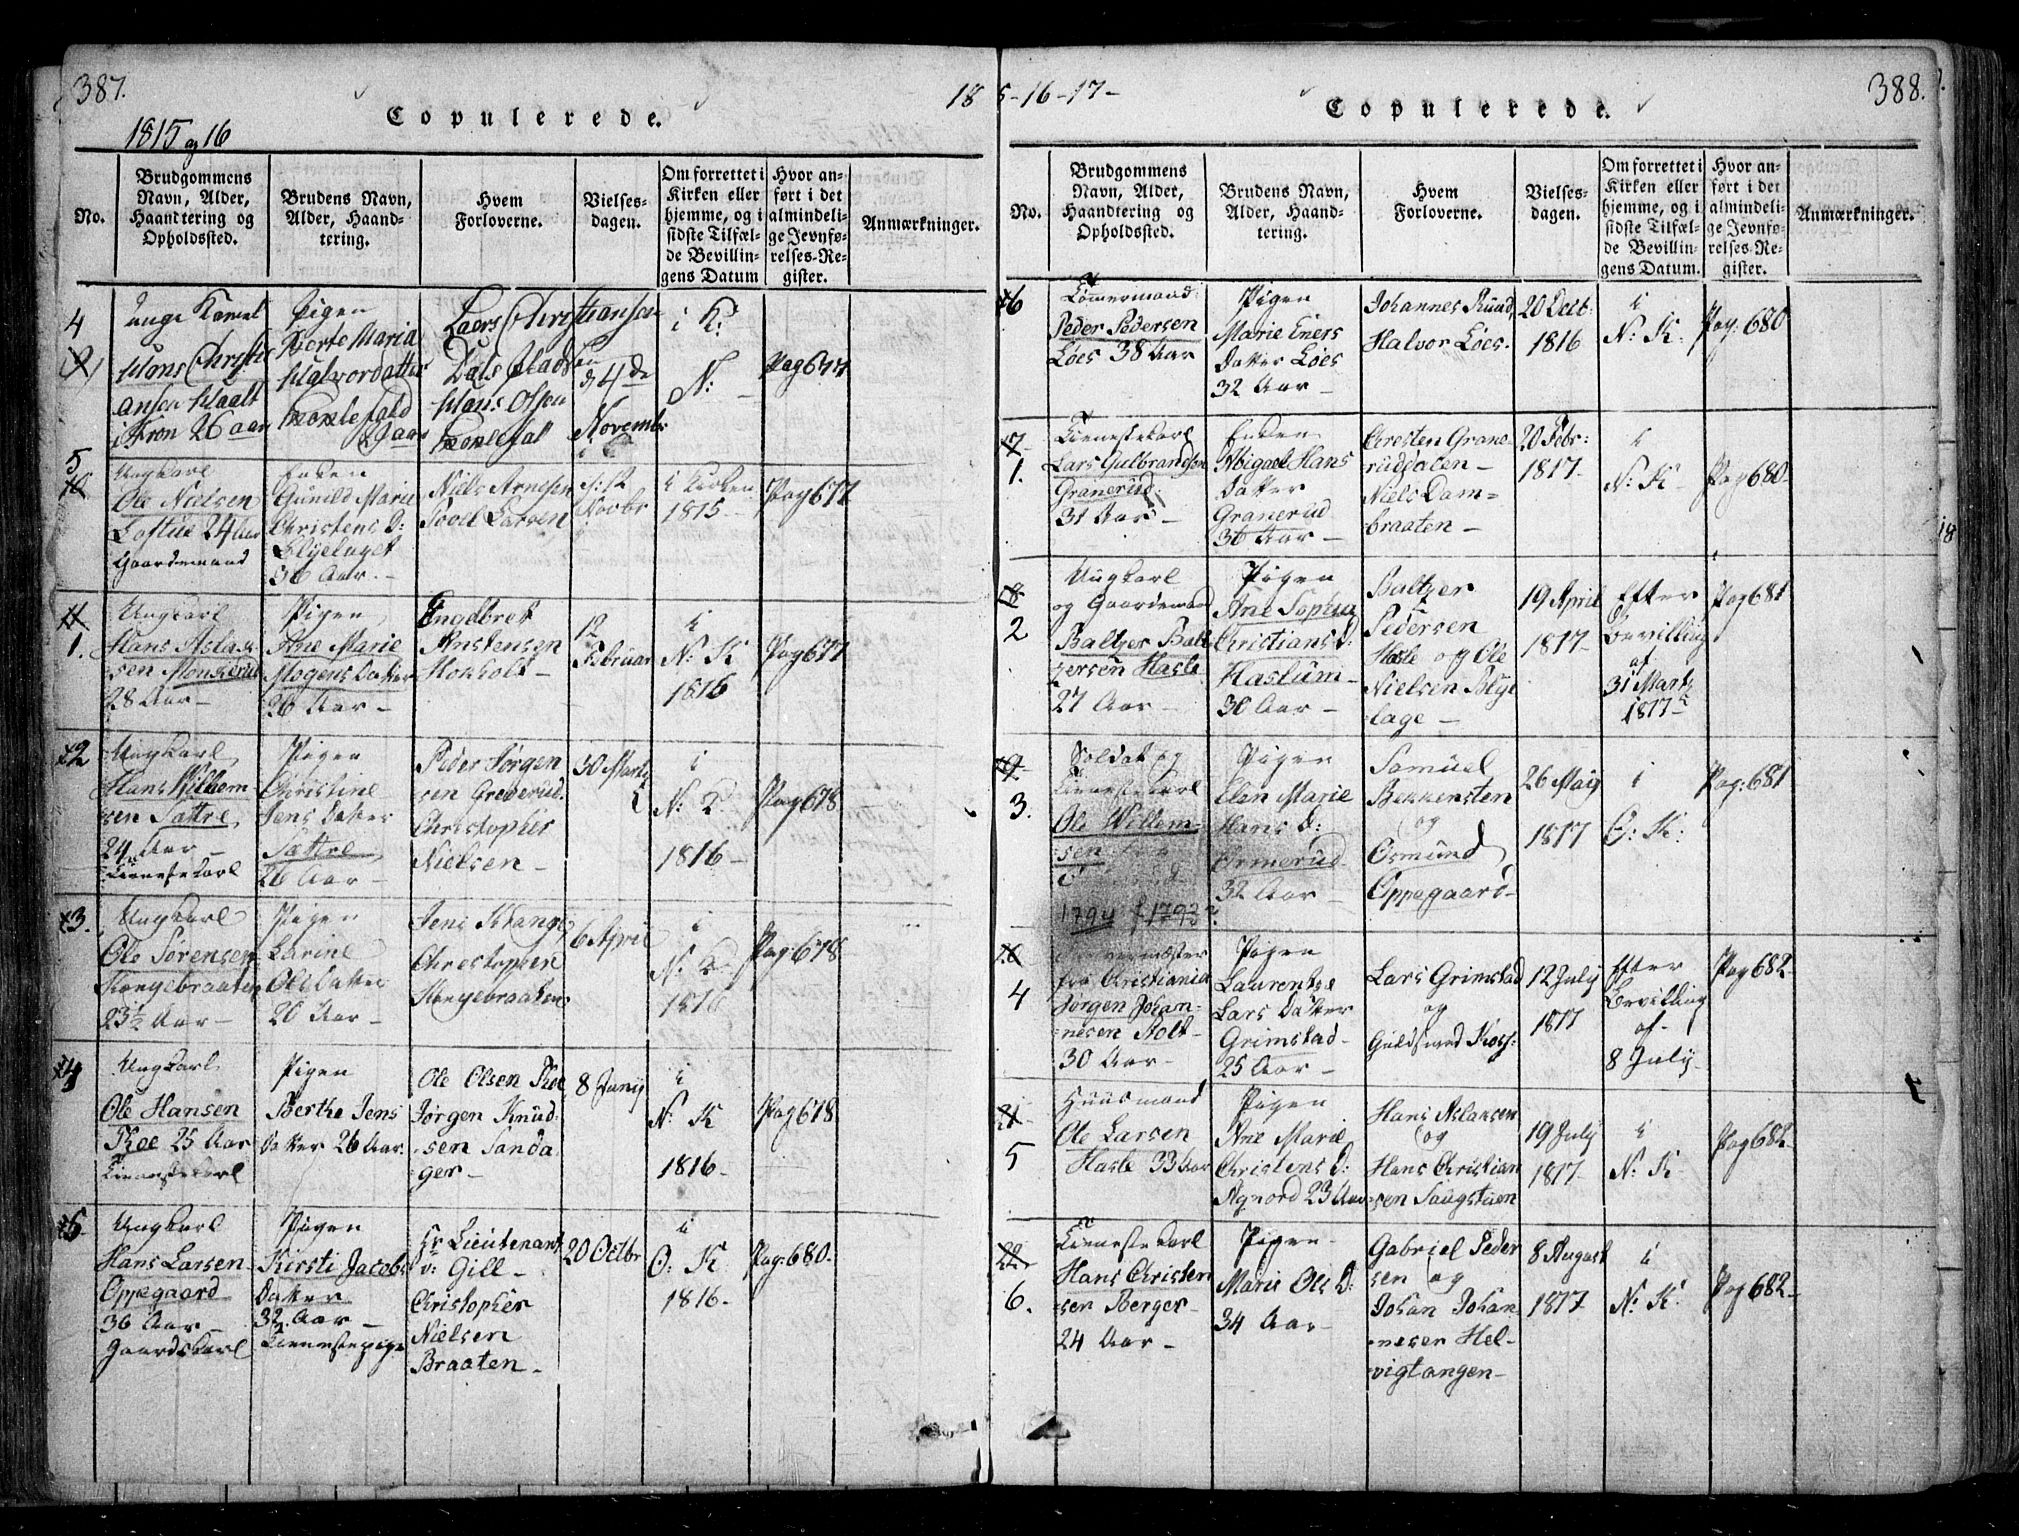 387.
1815 og 16
Copulerede.
18
No.
Brudgommens
Navn, Alder,
Haandtering og
Opholdssted.
Brudens Navn,
Alder, Haand-
tering.
Hvem
Forloverne.
Vielses-
dagen.
Om forrettet i
Kirken eller
hjemme, og i
sidste Tilfæl-
de Bevillin-
gens Datum
Hvor an-
ført i det
almindeli-
ge Jevnfø-
relses-Re-
gister.
Anmærkninger.
4
unge Karl
Mons Christi
ansen
26 aar
Pigen
Dorte Maria
Halvordatter
Laers Christiansen
Dals
Hans Olsen
d 4de
Novembr
i K:
N:
Pag 677
5
10
Ungkarl
Ole Nielsen
Loftue 24 Aar
Gaardemand
Enken
Gunild Marie
Christens D:
Blyelaget
36 Aar. -
Niels Arnesen
Poul Larsen
Novbr
i Kirken
1815 -
Pag 677
11
1.
Ungkarl
Hans Aslak
sen Monserud
28 Aar -
Pigen
Ane Marie
Mogens Datter
26 Aar -
Engelbret
Anstensen
Hokholt -
12
Februar
i
N: K
1816
Pag 677
12
Ungkarl
Hans Wilhem
sen Sættre
24 Aar -
Tienestekarl
Pigen
Christine
Jens Datter
Sættre
26 Aar -
Peder Jørgen
sen Grederud.
Christopher
Nielsen -
30 Martz
i
N: K
1816 -
Pag 678
13.
Ungkarl
Ole Sørensen
Kongebraaten
23½ Aar -
Pigen
Larine
Ols Datter
20 Aar -
Jens Krange
Christopher
Kongebraaten
6 April
i
N: K
1816
Pag: 678
14
Ungkarl
Ole Hansen
Roe 25 Aar
Tienestekarl
Pigen
Berthe Jens
Datter 26 Aar.
Ole Olsen Roe
Jørgen Knud-
sen Sanda
ger -
8 Junij
i
N: K
1816 -
Pag 678
15
Ungkarl
Hans Larsen
Oppegaard
36 Aar -
Gaardskarl
Pigen
Kirsti Jacobs
Datter
32. Aar -
Tienestepige
Hr Lieutenant
v: Gill -
Christopher
Nielsen
Braaten -
20 Octbr
i
O: K
1816 -
Pag: 680 -
5-16-17-
Copulerede.
388.
No.
Brudgommens
Navn, Alder,
Haandtering og
Opholdssted.
Brudens Navn,
Alder, Haand-
tering.
Hvem
Forloverne.
Vielses-
dagen.
Om forrettet i
Kirken eller
hjemme, og i
sidste Tilfæl-
de Bevillin-
gens Datum.
Hvor an-
ført i det
almindeli-
ge Jevnfø-
relses-Re-
gister.
Anmærkninger.
16
Tømermand
Peder Pedersen
Løes 38 Aar
Pigen
Marie Eners
Datter Løes
32 Aar -
Johannes Ruud,
Halvor Løes.
20 Dect:
1816
i
N: K.
Pag: 680
17
1.
Tienestekarl
Lars Gulbrandsen
Granerud.
31 Aar -
Enken
Abigael Hans
Datter
Granerud
36 Aar -
Christen Grane
rudsalen -
Niels Dam-
braaten -
20 Febr:
1817 -
i
N: K -
Pag 680 -
18
2
Ungkarl
og Gaardemand
Baltzer Balt
zersen Hasle
27 Aar -
Pigen
Ane Sophia
Christians D:
Haslum -
30 Aar -
Baltzer
Pedersen
Hasle og Ole
Nielsen Blye
lage -
19 April
1817 -
Efter
Bevilling
af
31 Martz
1817 -
Pag 681
19
3.
Soldat og
Tienestekarl
Ole Willem-
sen fra
1794 f 1793?
Pigen
Elen Marie
Hans D:
Ormerud
32 Aar -
Samuel
Bekkensten
og
Osmund
Oppegaard -
26 Maij
1817
i
O: K:
Pag: 681
20
4
fra Christiania
Jørgen Johan-
nesen Holt -
30 Aar -
Pigen
Laurentze
Lars Datter
Grimstad -
25 Aar -
Lars Grimstad
og
Guldsmed
12 July
1817
Efter
Bevilling
af -
8 July -
Pag 682 -
21
5
Huusmand
Ole Larsen
Hasle 33 Aar
Pigen
Ane Marie
Christens D:
Agnord 23 Aar
Hans Aslaksen
og
Hans Christian
sen Saugstuen
19 July
1817 -
i
N: K -
Pag 682 -
22
6.
Tienestekarl
Hans Christen
sen Berger -
24 Aar -
Pigen -
Marie Ols D:
34 Aar -
Gabriel Peder
sen og
Johan Johan
nesen Hel-
vigtangen -
8 August
1817 -
i
N: K.
Pag 682 -